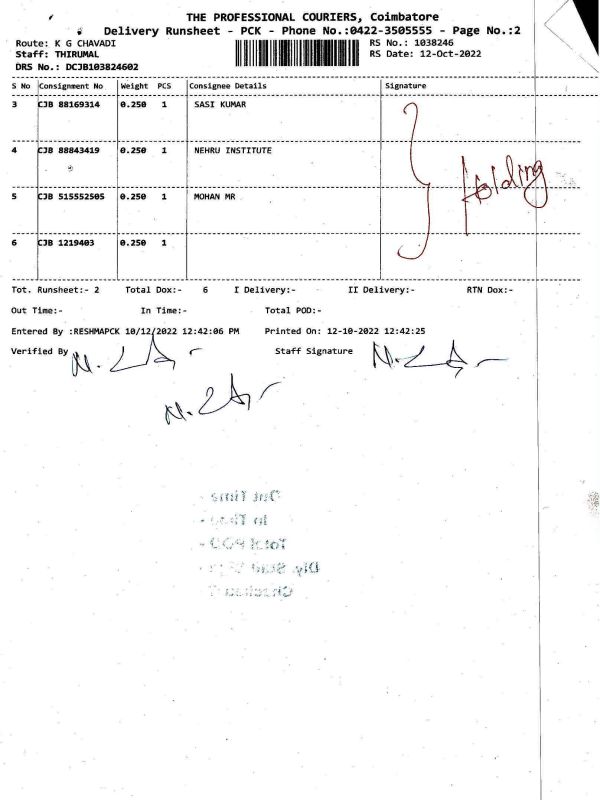 THE PROFESSIONAL COURIERS, Coimbatore
Delivery Runsheet - PCK - Phone No.:0422-3505555 - Page No.:2
Route: K G CHAVADI RS No.: 1038246
Staff: THIRUMAL RS Date: 12-Oct-2022
DRS No.: DCJB103824602
S No Consignment No Weight PCS Consignee Details Signature
3 CJB 88169314 0.250 1 SASI KUMAR
4 CJB 88843419 0.250 1 NEHRU INSTITUTE
Holding
5 CJB 515552505 0.250 1 MOHAN MR
6 CJB 1219403 0.250 1
Tot. Runsheet:- 2 Total Dox:- 6 I Delivery:- II Delivery:- RTN Dox:-
Out Time:- In Time:- Total POD:-
Entered By :RESHMAPCK 10/12/2022 12:42:06 PM Printed On: 12-10-2022 12:42:25
Verified By Staff Signature
Out Time -
In Time -
Total POD -